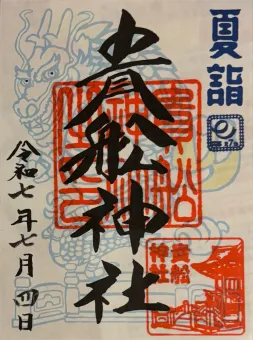 夏詣
貴船神社
令和七年七月四日
貴船
神社